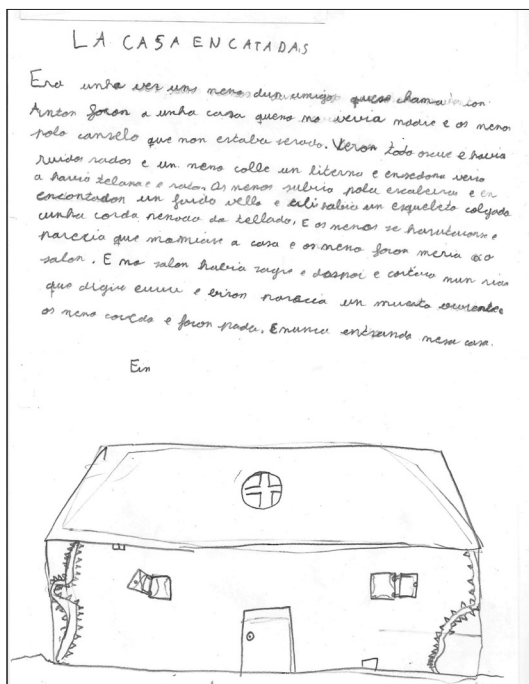 LA CASA ENCATADAS
Era unha ver uns neno dun amigo que se chama
Anton foron a unha casa queno no veria madie e os meno
polo canselo que non estaba serado. Veron todo oscue e havia
ruidos rados e un neno colle un literna e ensedona vero
a havia telanae e raton Os menos subiro pola escaleiras e en
encontadon un fardo vello e ali salvia un esqueleto colgado
cunha corda do tellado. E os menos se
parecia que a casa e os meno foron meria ao
salon. E no salon habia sagre e despoi e cortero nun
que digiu euuu e eiron paracia un muerto
os neno corredo e foron pada. E nunca entrando nesa casa.
Ein